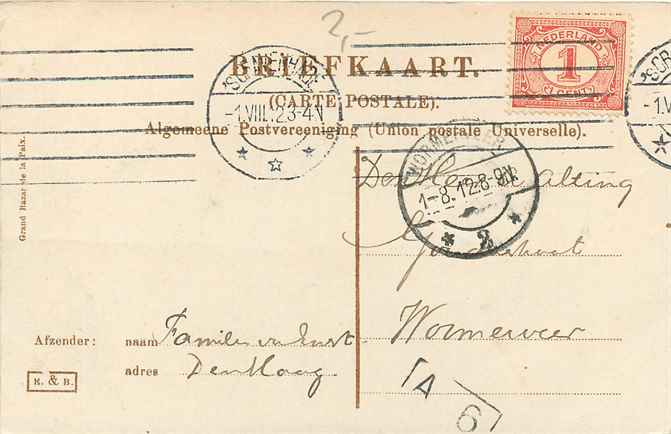 2,-
BRIEFKAART.
(CARTE POSTALE).
Algemeene Postvereeniging (Union postale Universelle).
NEDERLAND
1
CENT
-1.VIII.12.3-4N
WORMERVEER
1-8.12.8-9N
2
Den Heer Alting
Wormerveer
Afzender: naam Familie
adres Den Haag
K. & B.
Grand Bazar de la Paix.
A
6